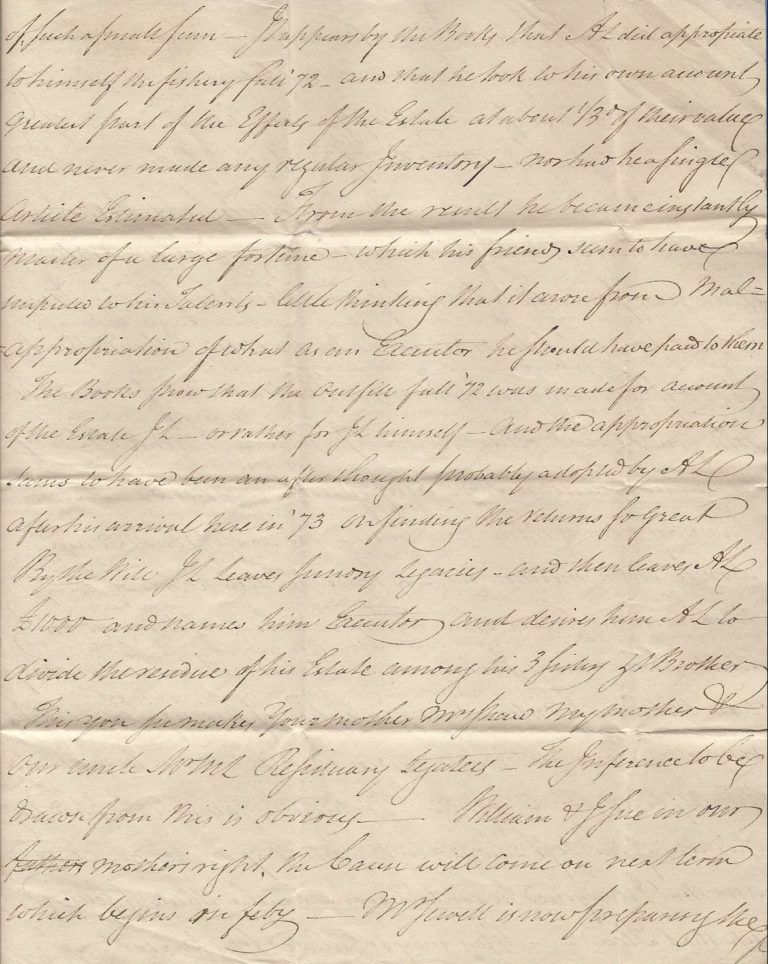 of such a small sum — It appears by the Books that AL did appropiate
to himself the fishery fall '72 — and that he took to his own account
greatest part of the Effects of the Estate at about 1/3d of their value
and never made any regular Inventory — nor had he a single
Article Estimated — From the result he became instantly
master of a large fortune — which his friends seem to have
imputed to his Talents — little thinking that it arose from Mal=
=appropriation of what as an Executor he should have paid to them
The Books show that the outfitt fall '72 was made for account
of the Estate JL — or rather for JL himself — And the appropriation
seems to have been an after thought probably adopted by AL
after his arrival here in '73 on finding the returns so Great
By the Will JL leaves sundry Legacies — and then leaves AL
£1000 and names him Executor and desires him AL to
divide the residue of his Estate among his 3 sisters & Brother
This you see makes Your mother Mrs Shaw My mother &
our uncle Mr ML Residuary Legatees — The Inference to be
drawn from this is obvious — William & I sue in our
fathers mothers right, the Cause will come on next term
which begins in feby — Mr Sewell is now preparing the